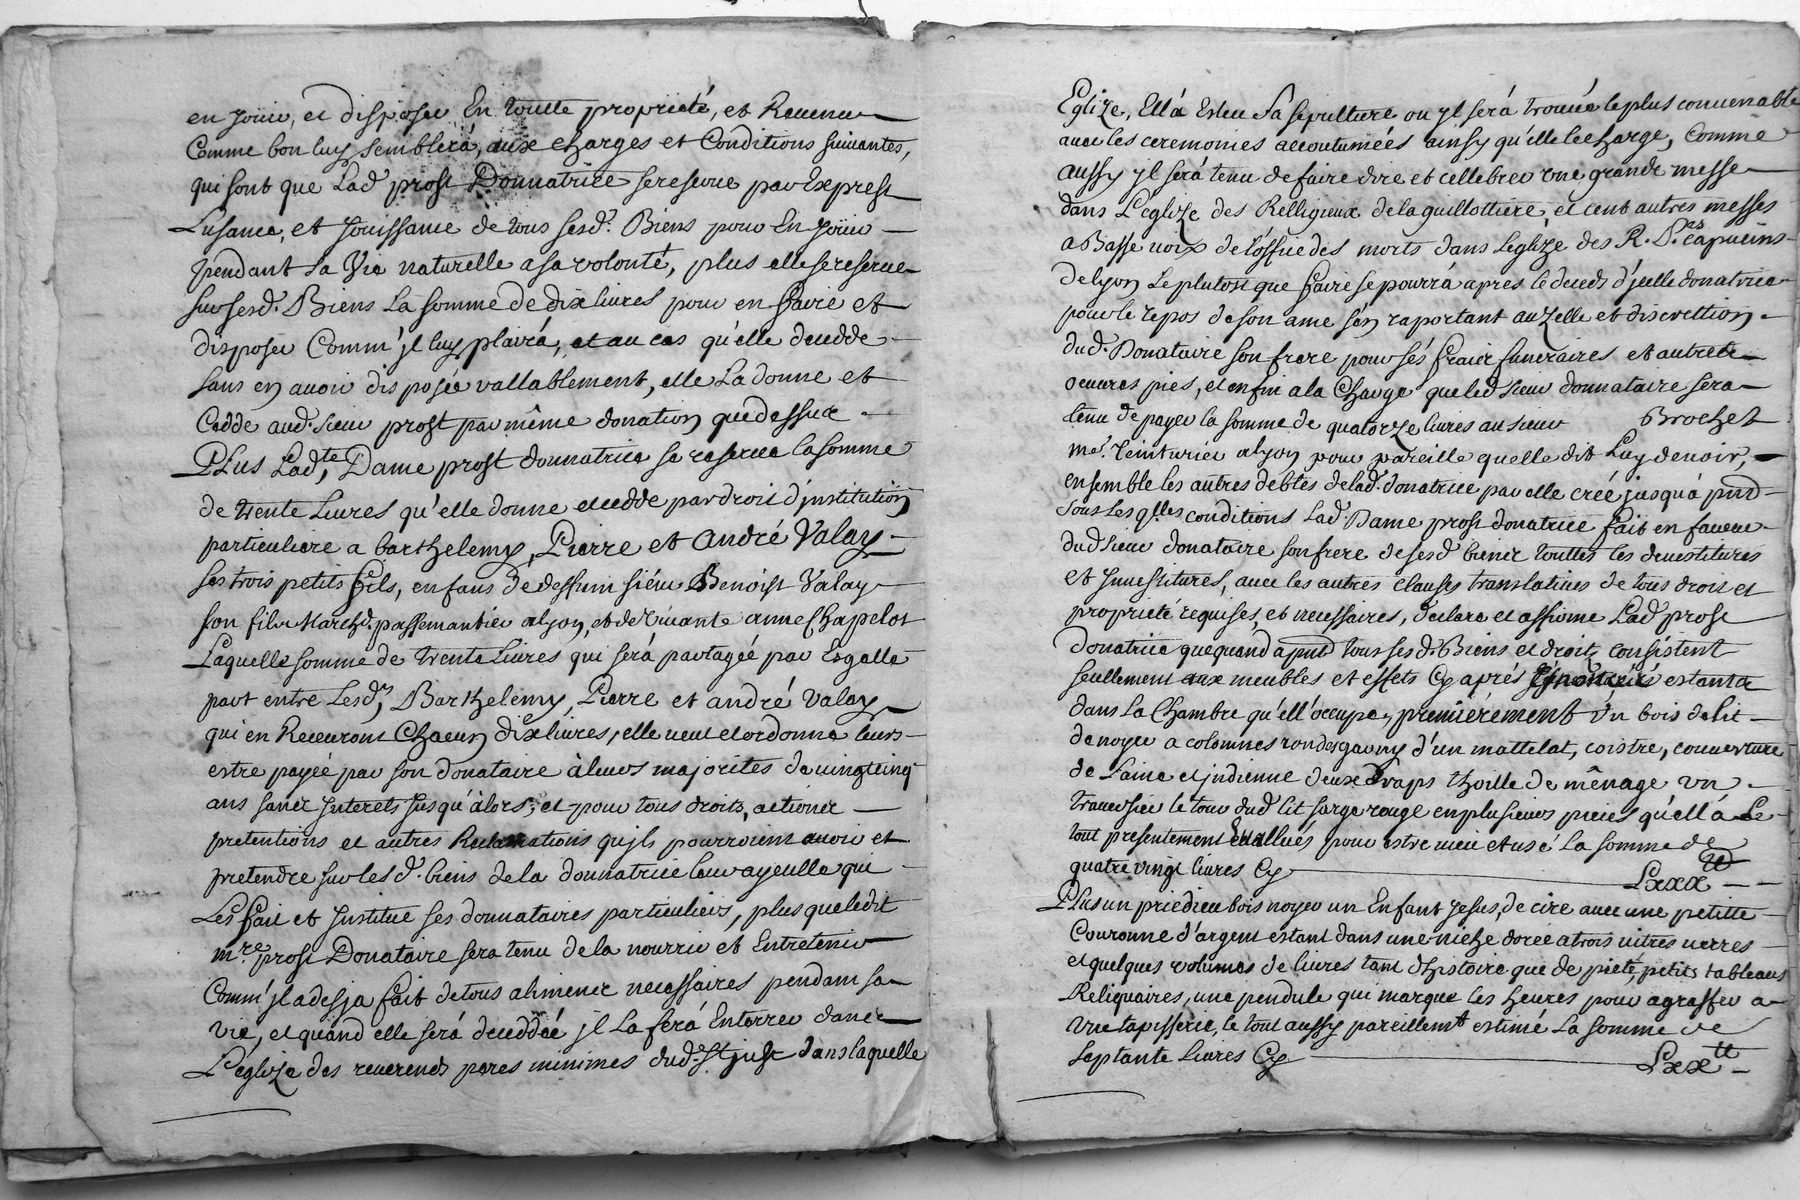 en jouir, et disposer En toutte proprieté, et Revenu
Comme bon luy semblerá, aux charges et Conditions suivantes,
qui sont que Lad. prost Donnatrice se reserve par Exprest
Lusance, et Jouissance de tous sesd. Biens pour En jouir
pendant sa Vie naturelle a sa volonté, plus elle se reserve
sur sesd. Biens La somme de dix livres pour en faire et
disposer Comm' jl luy plairá, et au cas qu'elle decedde
sans en avoir disposée vallablement, elle La donne et
Cedde aud. sieur prost par même donation que dessux
PLus Lad.te, Dame prost donnatrice se reserve la somme
de trente Livres qu'elle donne et cedde par droit d'jnstitution
particuliere a barthelemy, Pierre et André Valay
ses trois petits fils, enfans de deffunt siéur Benoist Valay
son fils March.d passemantier alyon, et de vivante anne Chapelot
Laquelle somme de trente Livres qui será partagéé par Esgalle
part entre Lesd., Barthelemy, Pierre et andré Valay
qui en Recevront Chacun dix livres, elle veut et ordonne leurs
estre payée par son donataire à leurs majorités de vingt cinq
ans sanc jnterets jusqu'àlors; et pour tous droits, actionc
pretentions et autres Reclamations qujls pourroient avoir et
pretendre sur les d. biens de la donnatrice leur ayeulle qui
Les fait et jnstitue ses donnataires particuliers, plus que ledit
m.re prost Donataire sera tenu de la nourrir et Entretenir
Comm' jl a desja fait de tous alimenc necessaires pendant sa
vie, et quánd elle será deceddéé jl La ferá Enterrer danc
L'eglize des reverends peres minimes dud. St just dans laquelle
Eglize, Ell'á Esleu sa sepulture ou jl será trouvéé le plus convenable
avec les ceremonies accoutuméés ainsy qu'elle le charge, Comme
aussy jl será tenu de faire dire et cellebrer une grande messe
dans L'eglize des Relligieux de la guillottiere, et cent autres messes
a Basse voix de l'office des morts dans L'eglize des R. P.es capucins
de lyon Le plutost que faire se pourrá aprés le deceds d'jcelle donatrice
pour le repos de son ame s'en raportant au Zelle et discrettion
dud. Donataire son frere pour sés fraix funeraires et autrete
oeuvres pies, et enfin a la Charge que led sieur donnataire sera
tenu de payer la somme de quatorze livres au sieur Brochet
me. teinturier alyon pour pareille quelle dit Luy devoir,
ensemble les autres debtes de lad. donatrice par elle créé jusqu'á pnt
Sous Les qlles conditions Lad. Dame prost donatrice fait en faveur
dud sieur donataire son frere de ses d bienc touttes les devestitures
et jnvestitures, avec les autres clauses translatives de tous droit et
proprieté requises, et necessaires, declare et affirme Lad prost
donatrice que quand a pnt tous ses d. Biens et droits consistent
seullement aux meubles et effets Cy aprés estantc
dans La Chambre qu'ell'occupe, premiérement Un bois de Lit
de noyer a colomnes rondes garny d'un mattelat, coistre, couverture
de Laine et jndienne deux Draps thoille de mênage un
traversier le tour dud Lit sarge rouge en plusieurs pieces qu'ell'á Le
tout presentement Evallués pour estre vieu et usé La somme de
quatre vingt livres Cy Lxxx tt
PLus un priedieu bois noyer un Enfant Jesus, de cire avec une petitte
Couronne d'argent estant dans une niche dorée a trois vitres verres
et quelques volumes de livres tant d'histoire que de pieté, petits tableaux
Reliquaires, une pendule qui marque les heures pour agraffer a
une tapisserie, le tout aussy pareillemt estimé La somme de
septante Livres Cy Lxx tt